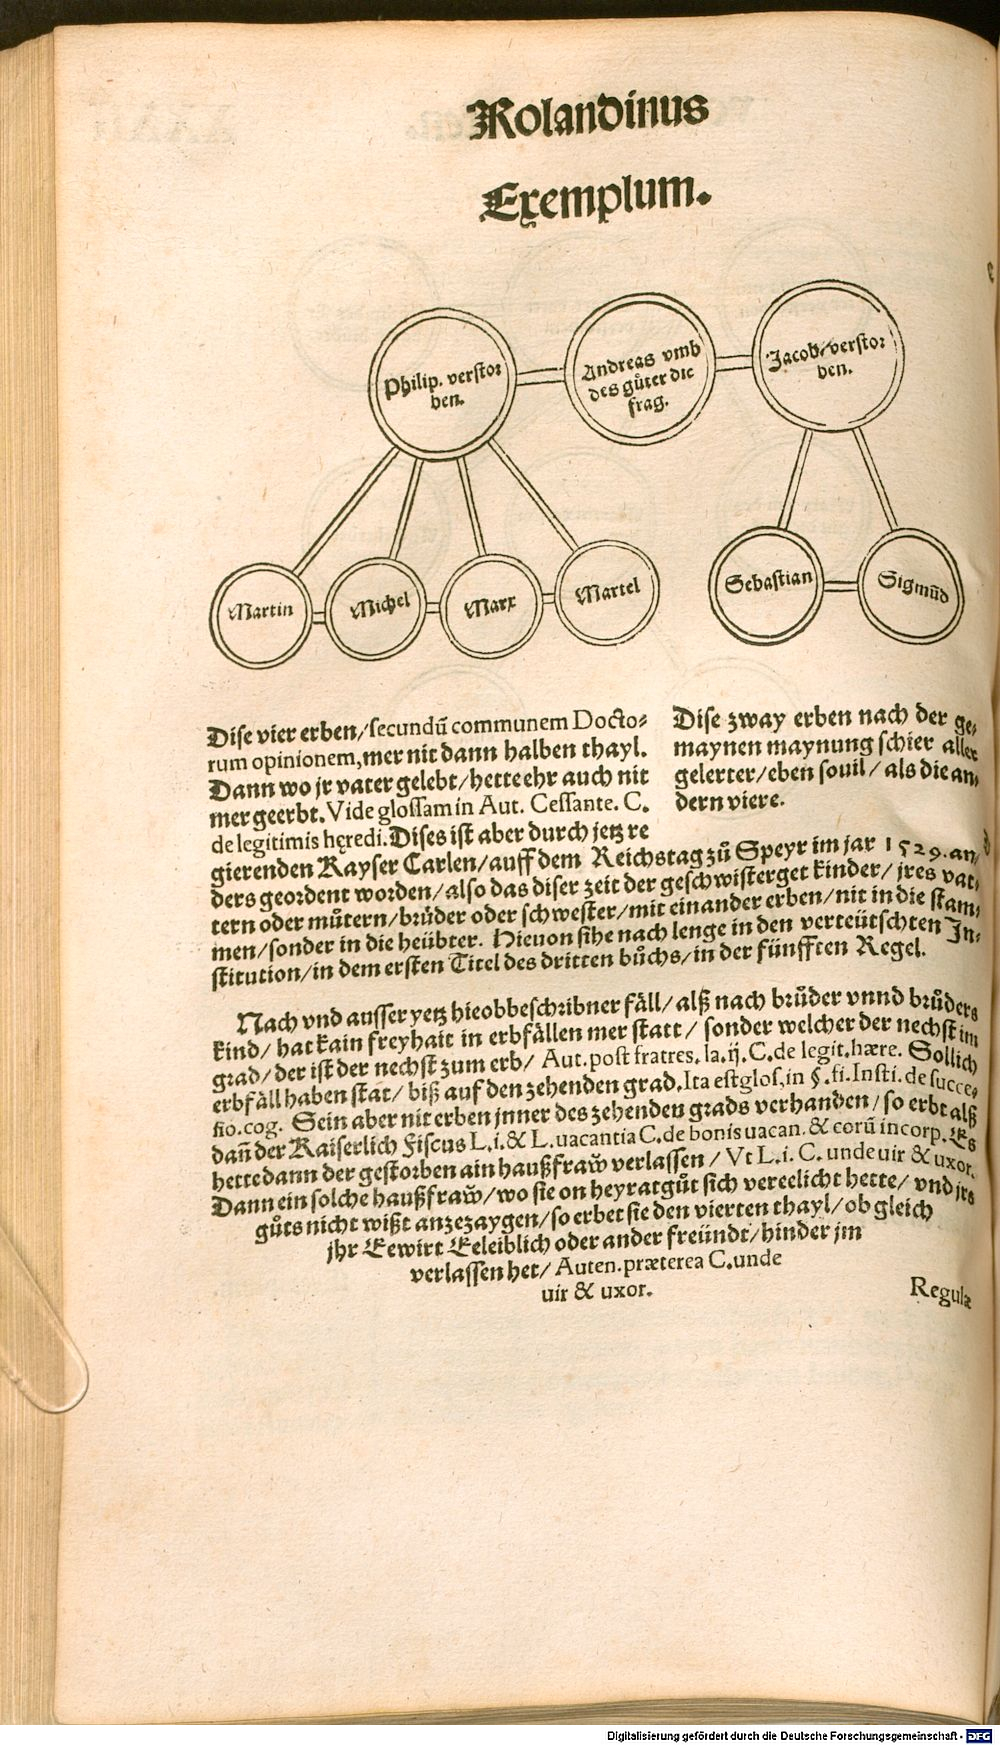 Rolandinus
Exemplum.
Philip. verstor
ben.
Andreas vmb
des gůter die
frag.
Jacob/verstor
ben.
Martin
Michel
Marx
Martel
Sebastian
Sigmūd
Dise vier erben/secundū communem Docto⸗
rum opinionem,mer nit dann halben thayl.
Dann wo jr vater gelebt/hette ehr auch nit
mer geerbt. Vide glossam in Aut. Cessante. C.
de legitimis hęredi. Dises ist aber durch jetz re
Dise zway erben nach der ge⸗
maynen maynung schier aller
gelerter/eben souil/als die an⸗
dern viere.
gierenden Kayser Carlen/auff dem Reichstag zů Speyr im jar 1529. an⸗
ders geordent worden/also das diser zeit der geschwisterget kinder/jres vat⸗
tern oder můtern/brůder oder schwester/mit einander erben/nit in die stam⸗
men/sonder in die heübter. Hieuon sihe nach lenge in den verteütschten In⸗
stitution/in dem ersten Titel des dritten bůchs/in der fünfften Regel.
Nach vnd ausser yetz hieobbeschribner fäll/alß nach brůder vnnd brůders
kind/hat kain freyhait in erbfällen mer statt/sonder welcher der nechst im
grad/der ist der nechst zum erb/Aut. post fratres. la. ij. C. de legit. hære. Sollich
erbfäll haben stat/biß auf den zehenden grad. Ita est glos, in §. fi. Insti. de succe⸗
sio. cog. Sein aber nit erben jnner des zehenden grads verhanden/so erbt alß
dañ der Kaiserlich Fiscus L. i. & L. uacantia C. de bonis uacan. & eorū incorp. Es
hette dann der gestorben ain haußfraw verlassen/Vt L. i. C. unde uir & uxor.
Dann ein solche haußfraw/wo sie on heyratgůt sich vereelicht hette/vnd jrs
gůts nicht wißt anzezaygen/so erbet sie den vierten thayl/ob gleich
jhr Eewirt Eeleiblich oder ander freündt/hinder jm
verlassen het/Auten. præterea C. unde
uir & uxor.
Regulæ
Digitalisierung gefördert durch die Deutsche Forschungsgemeinschaft - DFG